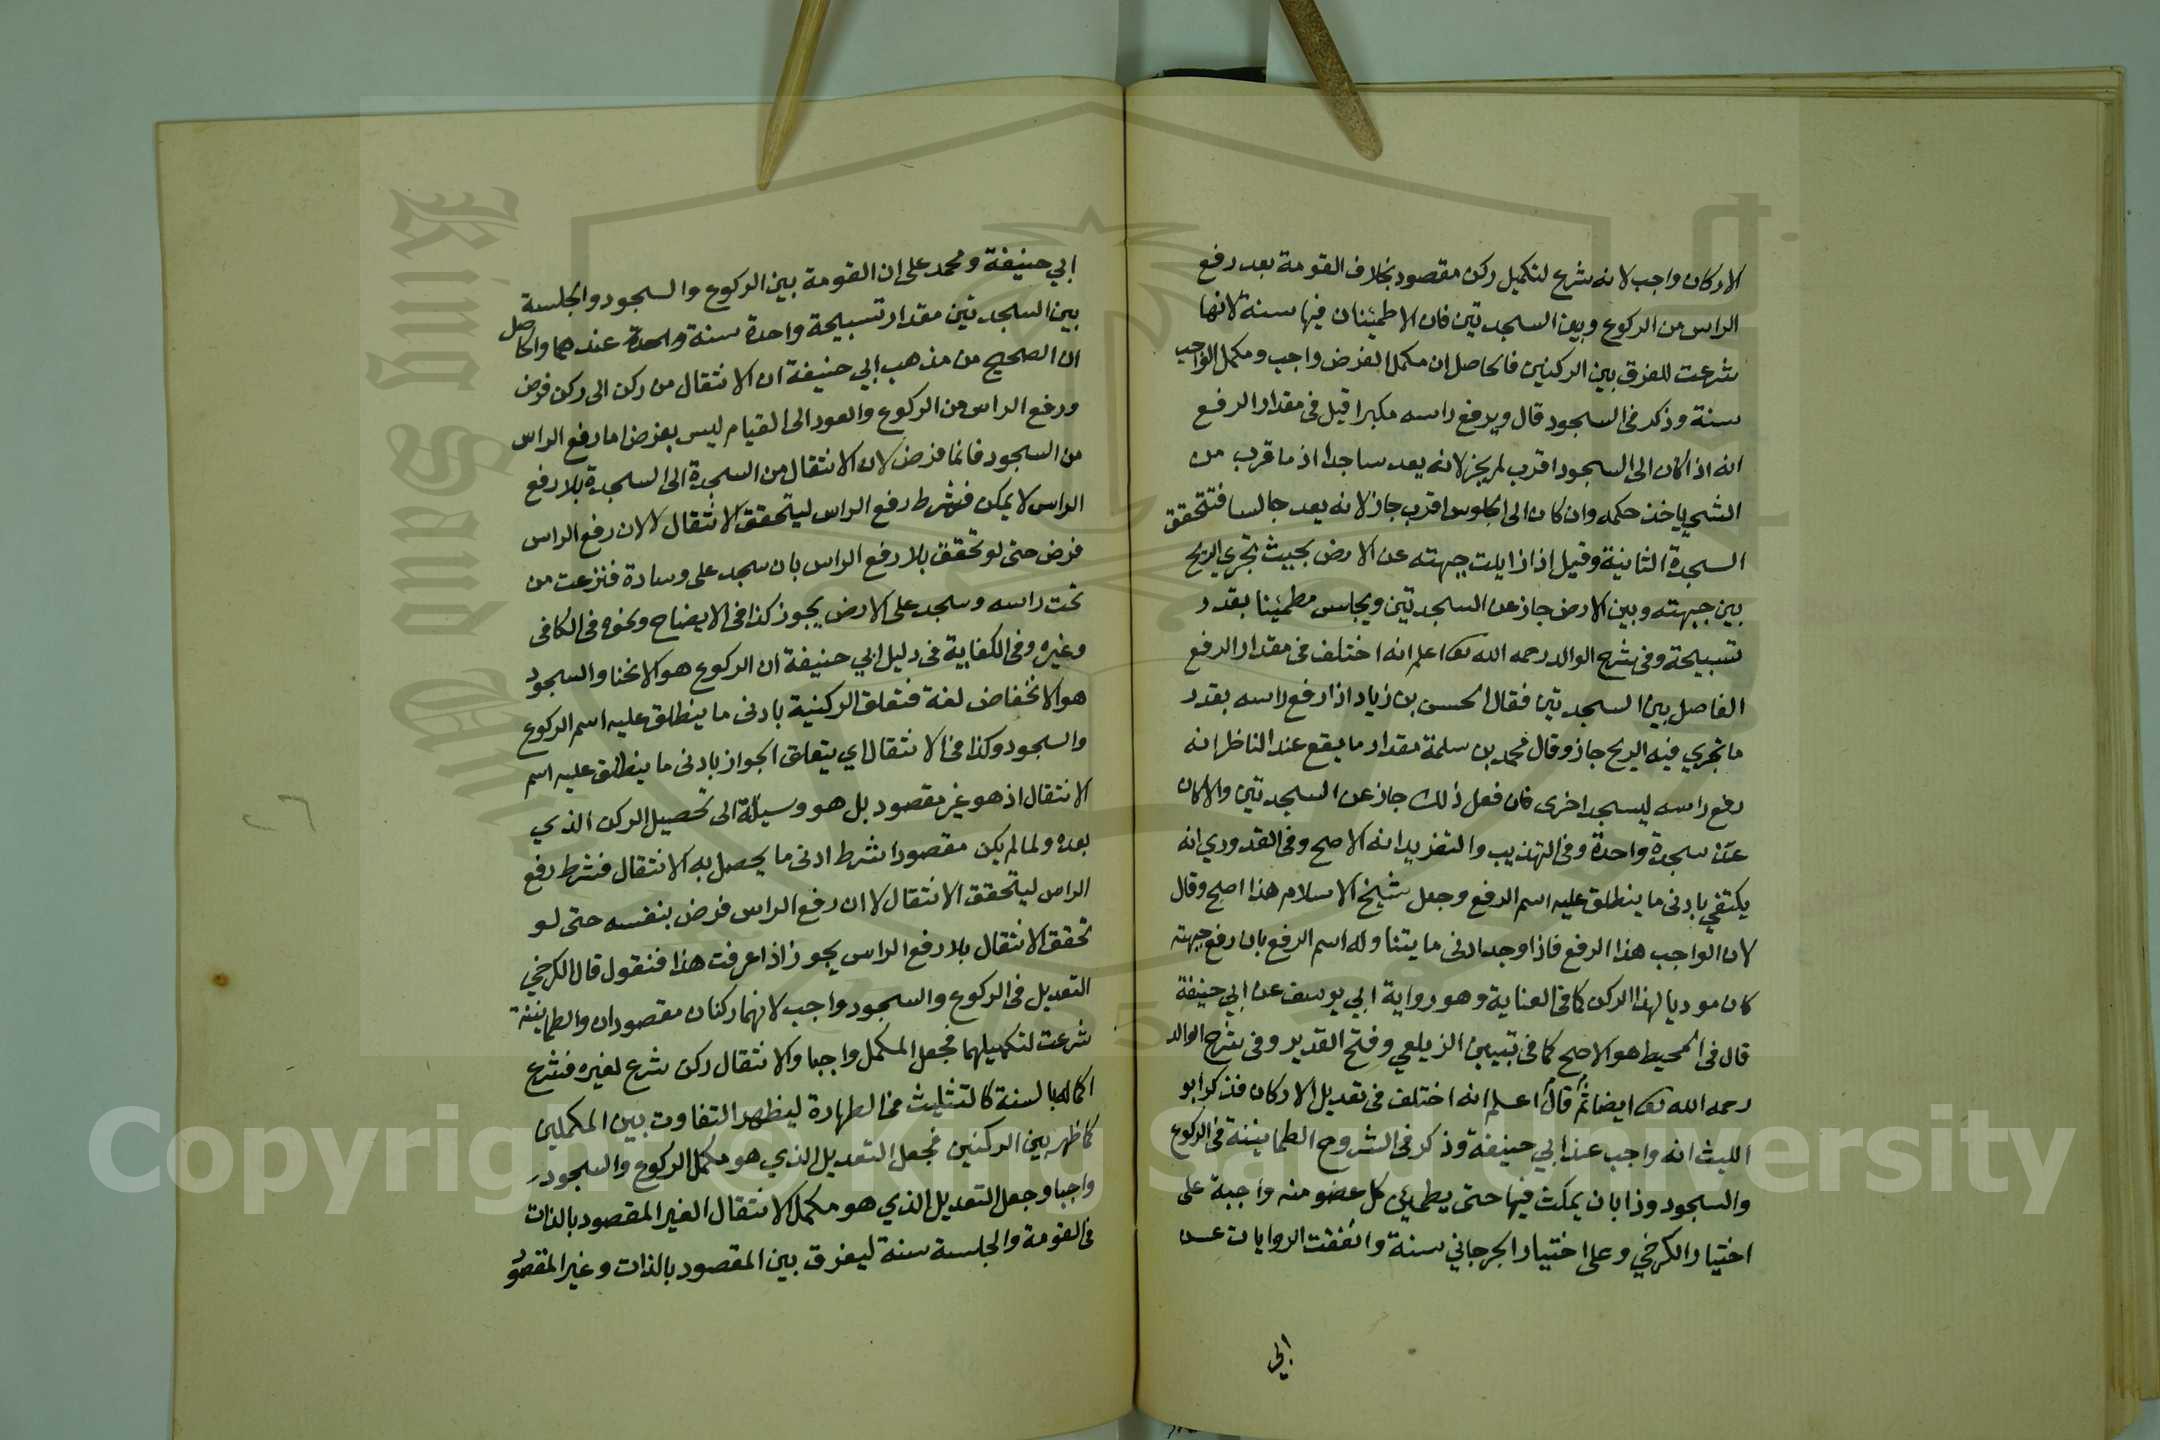 الاركان واجب لانه شرع لتكميل ركن مقصود بخلاف القومة بعد رفع
الراس من الركوع وبين السجدتين فان الاطمئنان فيها سنة لانها
شرعت للفرق بين الركنين فالحاصل ان مكمل الفرض واجب ومكمل الواجب
سنة وذكر في السجود قال ويرفع راسه مكبرا قيل في مقدار الرفع
انه اذا كان الى السجود اقرب لم يجز لانه يعد ساجدا اذ ما قرب من
الشي ياخذ حكمه وان كان الى الجلوس اقرب جاز لانه يعد جالسا فتتحقق
السجدة الثانية وقيل اذا زايلت جبهته عن الارض بحيث تجري الريح
بين جبهته وبين الارض جاز عن السجدتين ويجلس مطمئنا بقدر
تسبيحة وفي شرح الوالد رحمه الله تعا اعلم انه اختلف في مقدار الرفع
الفاصل بين السجدتين فقال الحسن بن زياد اذا رفع راسه بقدر
ما تجري فيه الريح جاز وقال محمد بن سلمة مقدار ما يقع عند الناظر انه
رفع راسه ليسجد اخرى فان فعل ذلك جاز عن السجدتين والا كان
عن سجدة واحدة وفي التهذيب والتفريد انه الاصح وفي القدوري انه
يكتفي بادنى ما ينطلق عليه اسم الرفع وجعل شيخ الاسلام هذا اصح وقال
لان الواجب هذا الرفع فاذا وجد ادنى ما يتناوله اسم الرفع بان رفع جبهته
كان موديا لهذا الركن كما في العناية وهو رواية ابي يوسف عن ابي حنيفة
قال في المحيط هو الاصح كما في تبيين الزيلعي وفتح القدير وفي شرح الوالد
رحمه الله تعا ايضا ثم قال اعلم انه اختلف في تعديل الاركان فذكر ابو
الليث انه واجب عند ابي حنيفة وذكر في الشروح الطمانينة في الركوع
والسجود وذا بان يمكث فيها حتى يطمئن كل عضو منه واجبة على
اختيار الكرخي وعلى اختيار الجرجاني سنة واتفقت الروايات عن
ابي
ابي حنيفة ومحمد على ان القومة بين الركوع والسجود والجلسة
بين السجدتين مقدار تسبيحة واحدة سنة واحدة عندهما والحاصل
ان الصحيح من مذهب ابي حنيفة ان الانتقال من ركن الى ركن فرض
ورفع الراس من الركوع والعود الى القيام ليس بفرض اما رفع الراس
من السجود فانما فرض لان الانتقال من السجدة الى السجدة بلا رفع
الراس لا يمكن فشرط رفع الراس ليتحقق الانتقال لا لان رفع الراس
فرض حتى لو تحقق بلا رفع الراس بان سجد على وسادة فنزعت من
تحت راسه وسجد على الارض يجوز كذا في الايضاح ونحوه في الكافي
وغيره وفي الكفاية في دليل ابي حنيفة ان الركوع هو الانحنا والسجود
هو الانخفاض لغة فتعلق الركنية بادنى ما ينطلق عليه اسم الركوع
والسجود وكذا في الانتقال اي يتعلق الجواز بادنى ما ينطلق عليه اسم
الانتقال اذ هو غير مقصود بل هو وسيلة الى تحصيل الركن الذي
بعده ولما لم يكن مقصودا شرط ادنى ما يحصل به الانتقال فشرط رفع
الراس ليتحقق الانتقال لا ان رفع الراس فرض بنفسه حتى لو
تحقق الانتقال بلا رفع الراس يجوز اذا عرفت هذا فنقول قال الكرخي
التعديل في الركوع والسجود واجب لانهما ركنان مقصودان والطمانينة
شرعت لتكميلهما فجعل المكمل واجبا والانتقال ركن شرع لغيره فشرع
اكماله بالسنة كالتثليث في الطهارة ليظهر التفاوت بين المكملين
كما ظهر بين الركنين فجعل التعديل الذي هو مكمل الركوع والسجود
واجبا وجعل التعديل الذي هو مكمل الانتقال الغير المقصود بالذات
في القومة والجلسة سنة ليفرق بين المقصود بالذات وغير المقصود
Copyright © King Saud University